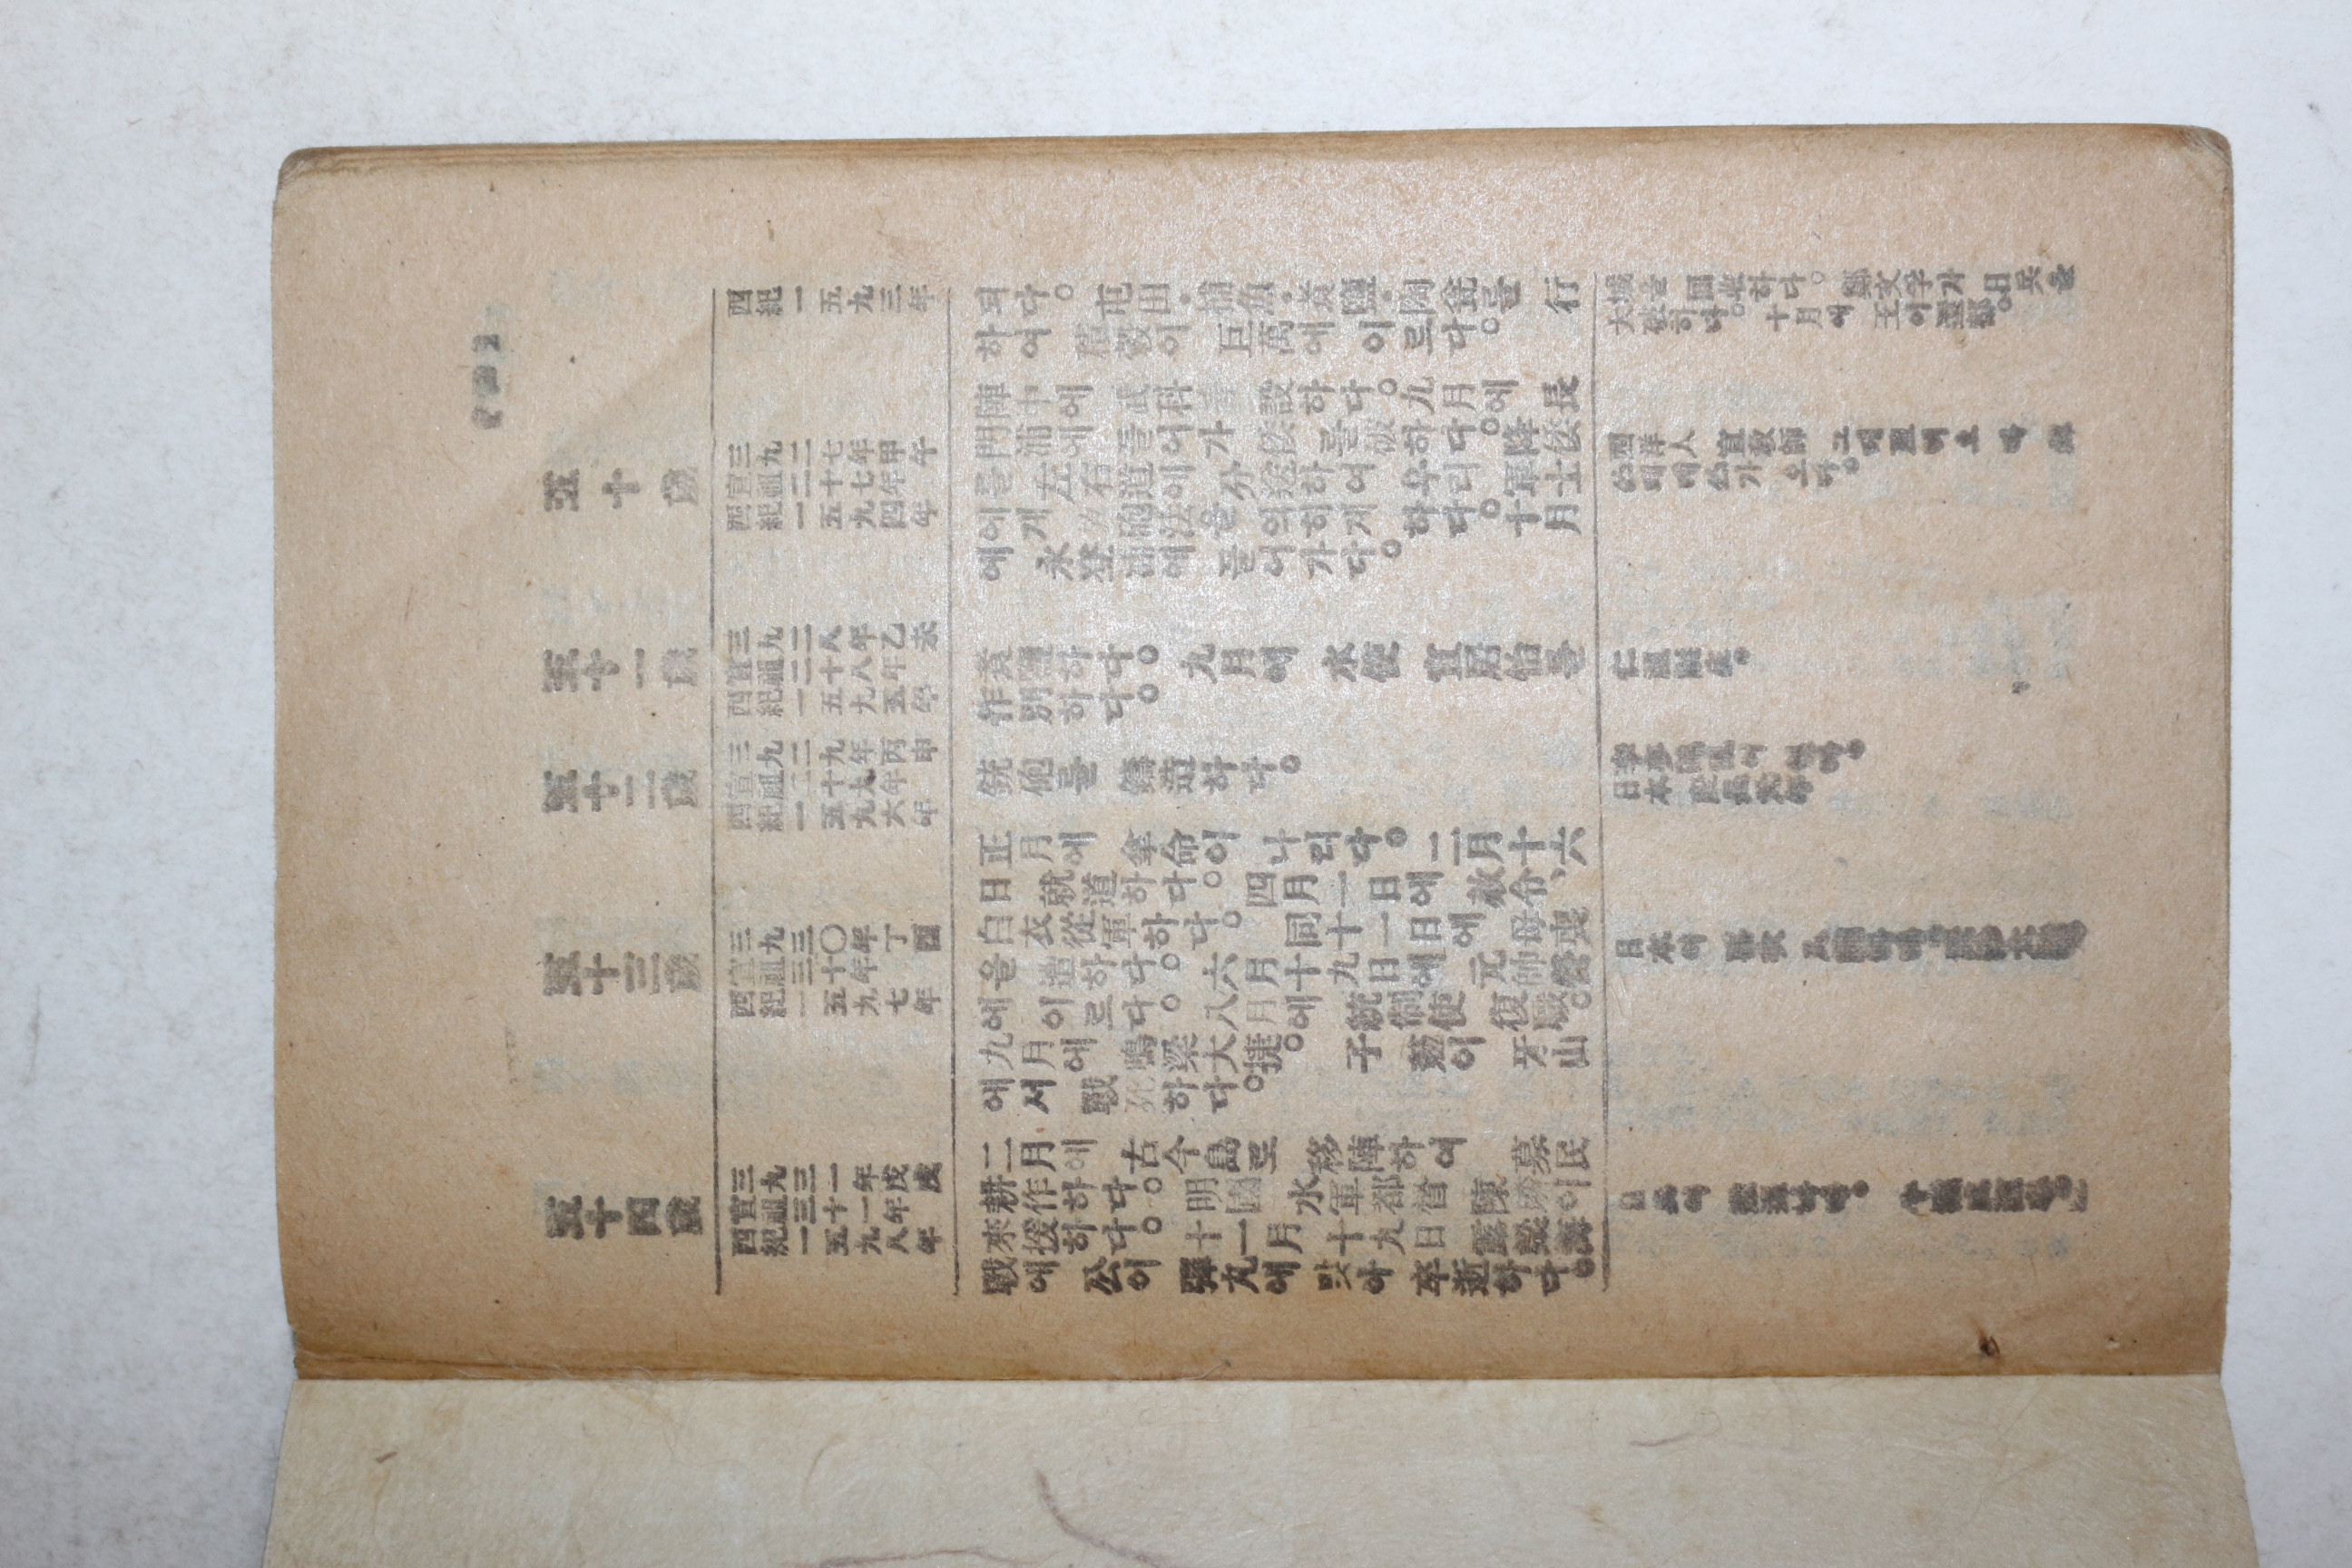 西紀一五九三年
되다。屯田·捕魚·煮鹽·陶瓮를 行
하여 積穀이 巨萬에 이르다。
城을 回收하다。鄭文孚가 日兵을
大破하다。十月에 王이 還都。
五十歲
三九二七年甲午
宣祖二十七年
西紀一五九四年
陣中에 武科를 設하다。九月에 長
門浦에 들어가 倭를 破하다。降倭
를 左右道에 分送하여 우리 軍士
에게 砲法을 의히게 하다。十月
에 永登浦에 들어가다。
西洋人 宣敎師 그레고리오 데
스페데스가 오다。
五十一歲
三九二八年乙未
宣祖二十八年
西紀一五九五年
煮鹽하다。九月에 水使 宣居怡를
作別하다。
仁祖誕生。
五十二歲
三九二九年丙申
宣祖二十九年
西紀一五九六年
銃砲를 鑄造하다。
李夢鶴亂이
日本 慶長元年
五十三歲
三九三〇年丁酉
宣祖三十年
西紀一五九七年
正月에 拿命이 나리다。二月十六
日 就道하다。四月一日에 赦令、
白衣從軍하다。同十一日에 母喪
을 遭하다。六月十九日에 元帥營
에 이르다。八月에 統制使 復職。
九月에 鳴梁大捷。子 葂이 牙山
에서 戰死하다。
日本이
五十四歲
三九三一年戊戌
宣祖三十一年
西紀一五九八年
二月에 古今島로 移陣하여 募民
耕作하다。明國 水軍都督 陳璘이
來援하다。十一月 十九日 露梁海
戰에 公이 彈丸에 맞아 卒逝하다。
日兵이